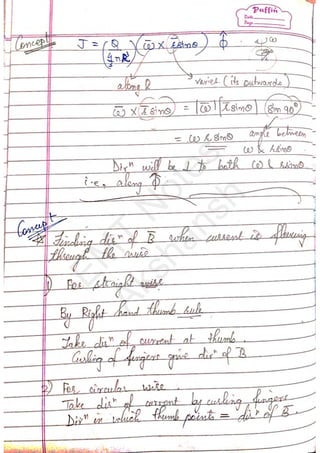 Puffin
Date
Page
Concept
J = (Q / 4/3 πR³) (ω̄ × r̄ sinθ) φ̂
along k̂ varies (its outwards)
ω̄ × r̄ sinθ = |ω̄| |r̄ sinθ| sin 90°
= ω r sinθ angle between
ω & r sinθ
Dirⁿ will be ⊥ to both ω & r sinθ
i.e, along φ̂
Concept
Finding dirⁿ of B̄ when current is flowing
through the wire
1) For straight wire
By Right hand thumb rule
Take dirⁿ of current at thumb.
Curling of fingers give dirⁿ of B
2) For circular wire.
Take dirⁿ of current by curling fingers
Dirⁿ in which thumb points = dirⁿ of B̄.